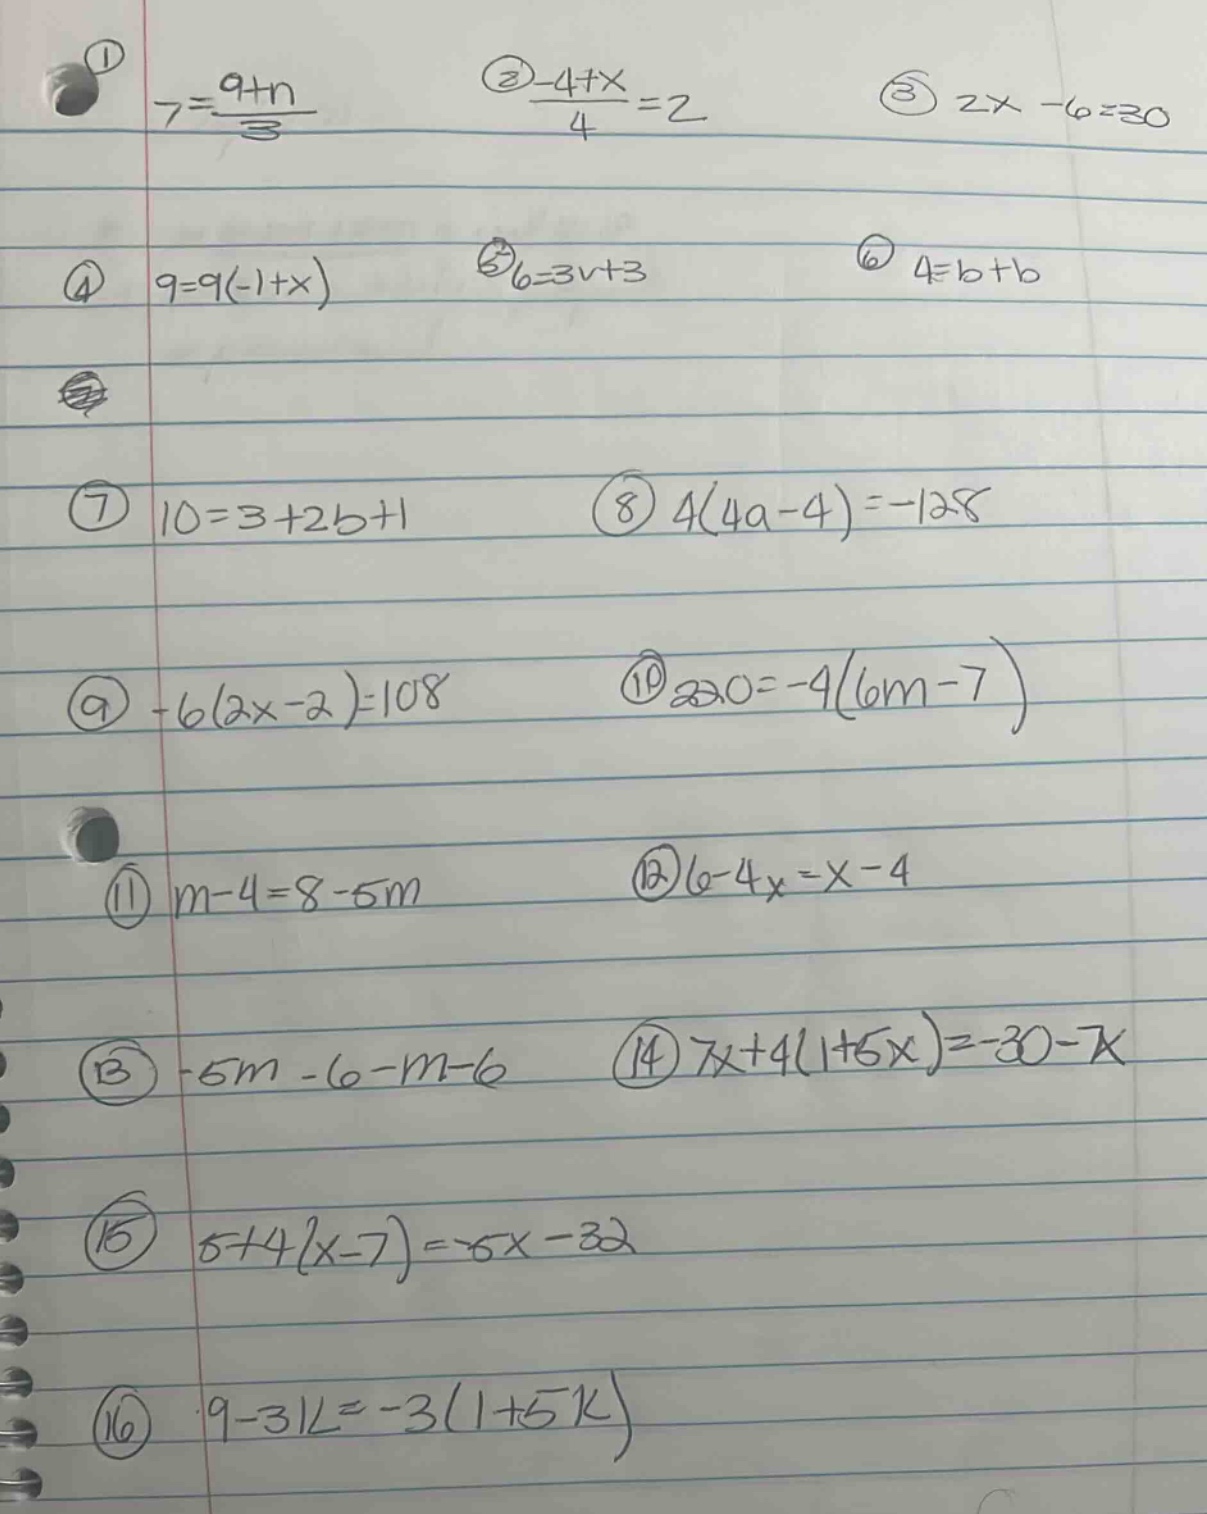 ① 7 = (9+n)/3 ② (-4+x)/4 = 2 ③ 2x - 6 = 30
④ 9=9(-1+x) ⑤ 6=3v+3 ⑥ 4=b+b
⑦ 10=3+2b+1 ⑧ 4(4a-4)=-128
⑨ -6(2x-2)=108 ⑩ 220=-4(6m-7)
⑪ m-4=8-5m ⑫ 6-4x=x-4
⑬ -5m-6-m-6 ⑭ 7x+4(1+5x)=-30-7x
⑮ 5+4(x-7)=-5x-32
⑯ 9-3k=-3(1+5k)